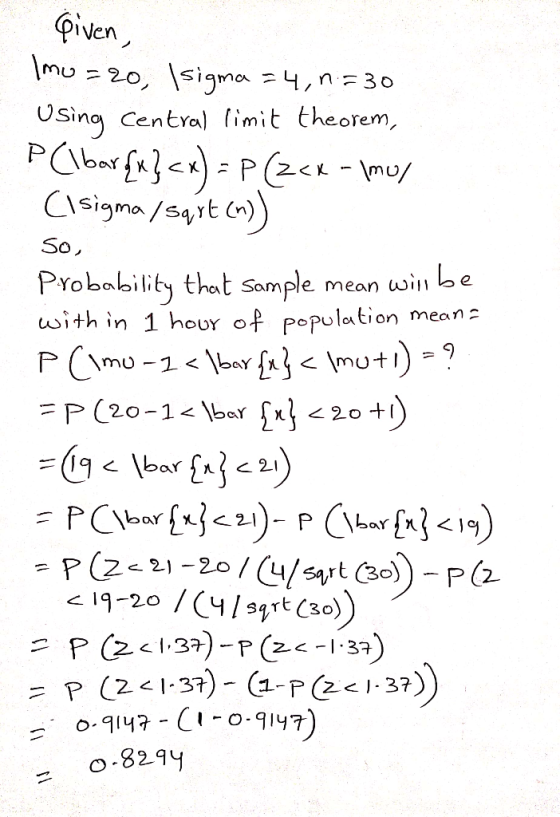 Given,
\mu = 20, \sigma = 4, n = 30
Using Central limit theorem,
P(\bar{x}<x) = P(z<x - \mu/
(\sigma/sqrt(n))
So,
Probability that sample mean will be
with in 1 hour of population mean=
P(\mu-1<\bar{x}<\mu+1) = ?
=P(20-1<\bar{x}<20+1)
=(19<\bar{x}<21)
= P(\bar{x}<21)- P(\bar{x}<19)
= P(Z<21-20/(4/sqrt(30))-P(z
<19-20/(4/sqrt(30))
= P(z<1.37)-P(z<-1.37)
= P(z<1.37)-(1-P(z<1.37))
= 0.9147-(1-0.9147)
= 0.8294